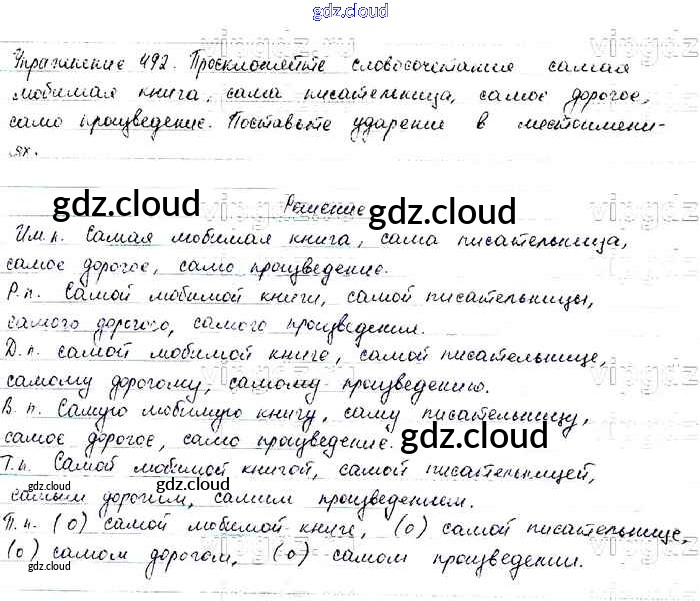 gdz.cloud
Упражнение 492. Просклоняйте словосочетания самая
любимая книга, сама писательница, самое дорогое,
само произведение. Поставьте ударение в местоимени-
ях.
gdz.cloud gdz.cloud
Решение
Им.п. Самая любимая книга, сама писательница,
самое дорогое, само произведение.
Р.п. Самой любимой книги, самой писательницы,
самого дорогого, самого произведения.
Д.п. самой любимой книге, самой писательнице,
самому дорогому, самому произведению.
В.п. Самую любимую книгу, саму писательницу,
самое дорогое, само произведение.
gdz.cloud
Т.п. Самой любимой книгой, самой писательницей,
gdz.cloud gdz.cloud
самым дорогим, самим произведением.
П.п. (о) самой любимой книге, (о) самой писательнице,
(о) самом дорогом, (о) самом произведении.
gdz.cloud gdz.cloud gdz.cloud